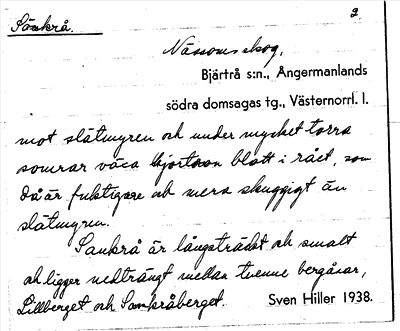 Sånkrå.
2.
Nässoms skog,
Bjärtrå s:n., Ångermanlands
södra domsagas tg., Västernorrl. l.
mot slåtmyren och under mycket torra
somrar våta blott i rået, som
då är fuktigare och mera skuggigt än
slåtmyren.
Sankrå är långsträckt och smalt
och ligger nedträngt mellan tvenne bergåsar,
Lillberget och Sankråberget.
Sven Hiller 1938.